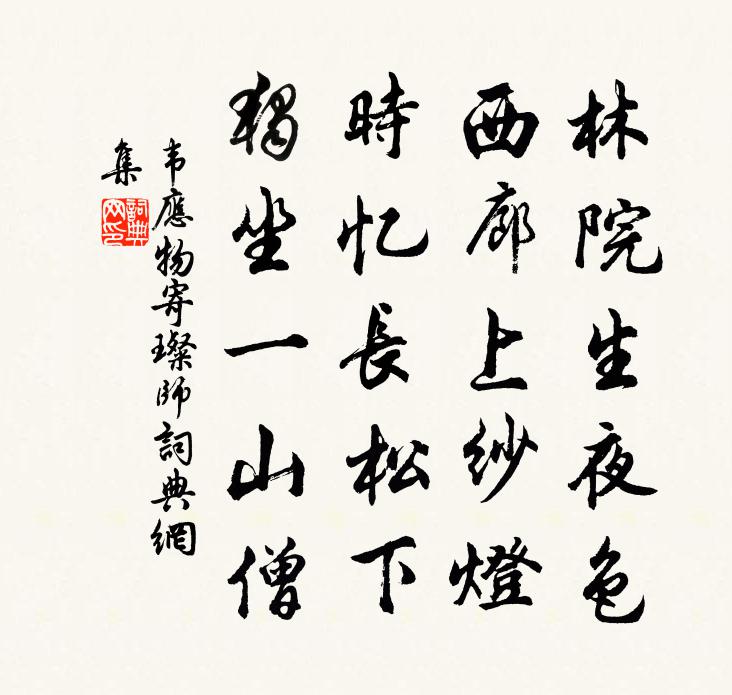 林院生夜色
西廊上紗燈
時忆長松下
獨坐一山僧
韦應物寄璨師詞典網
集
詞典
网印